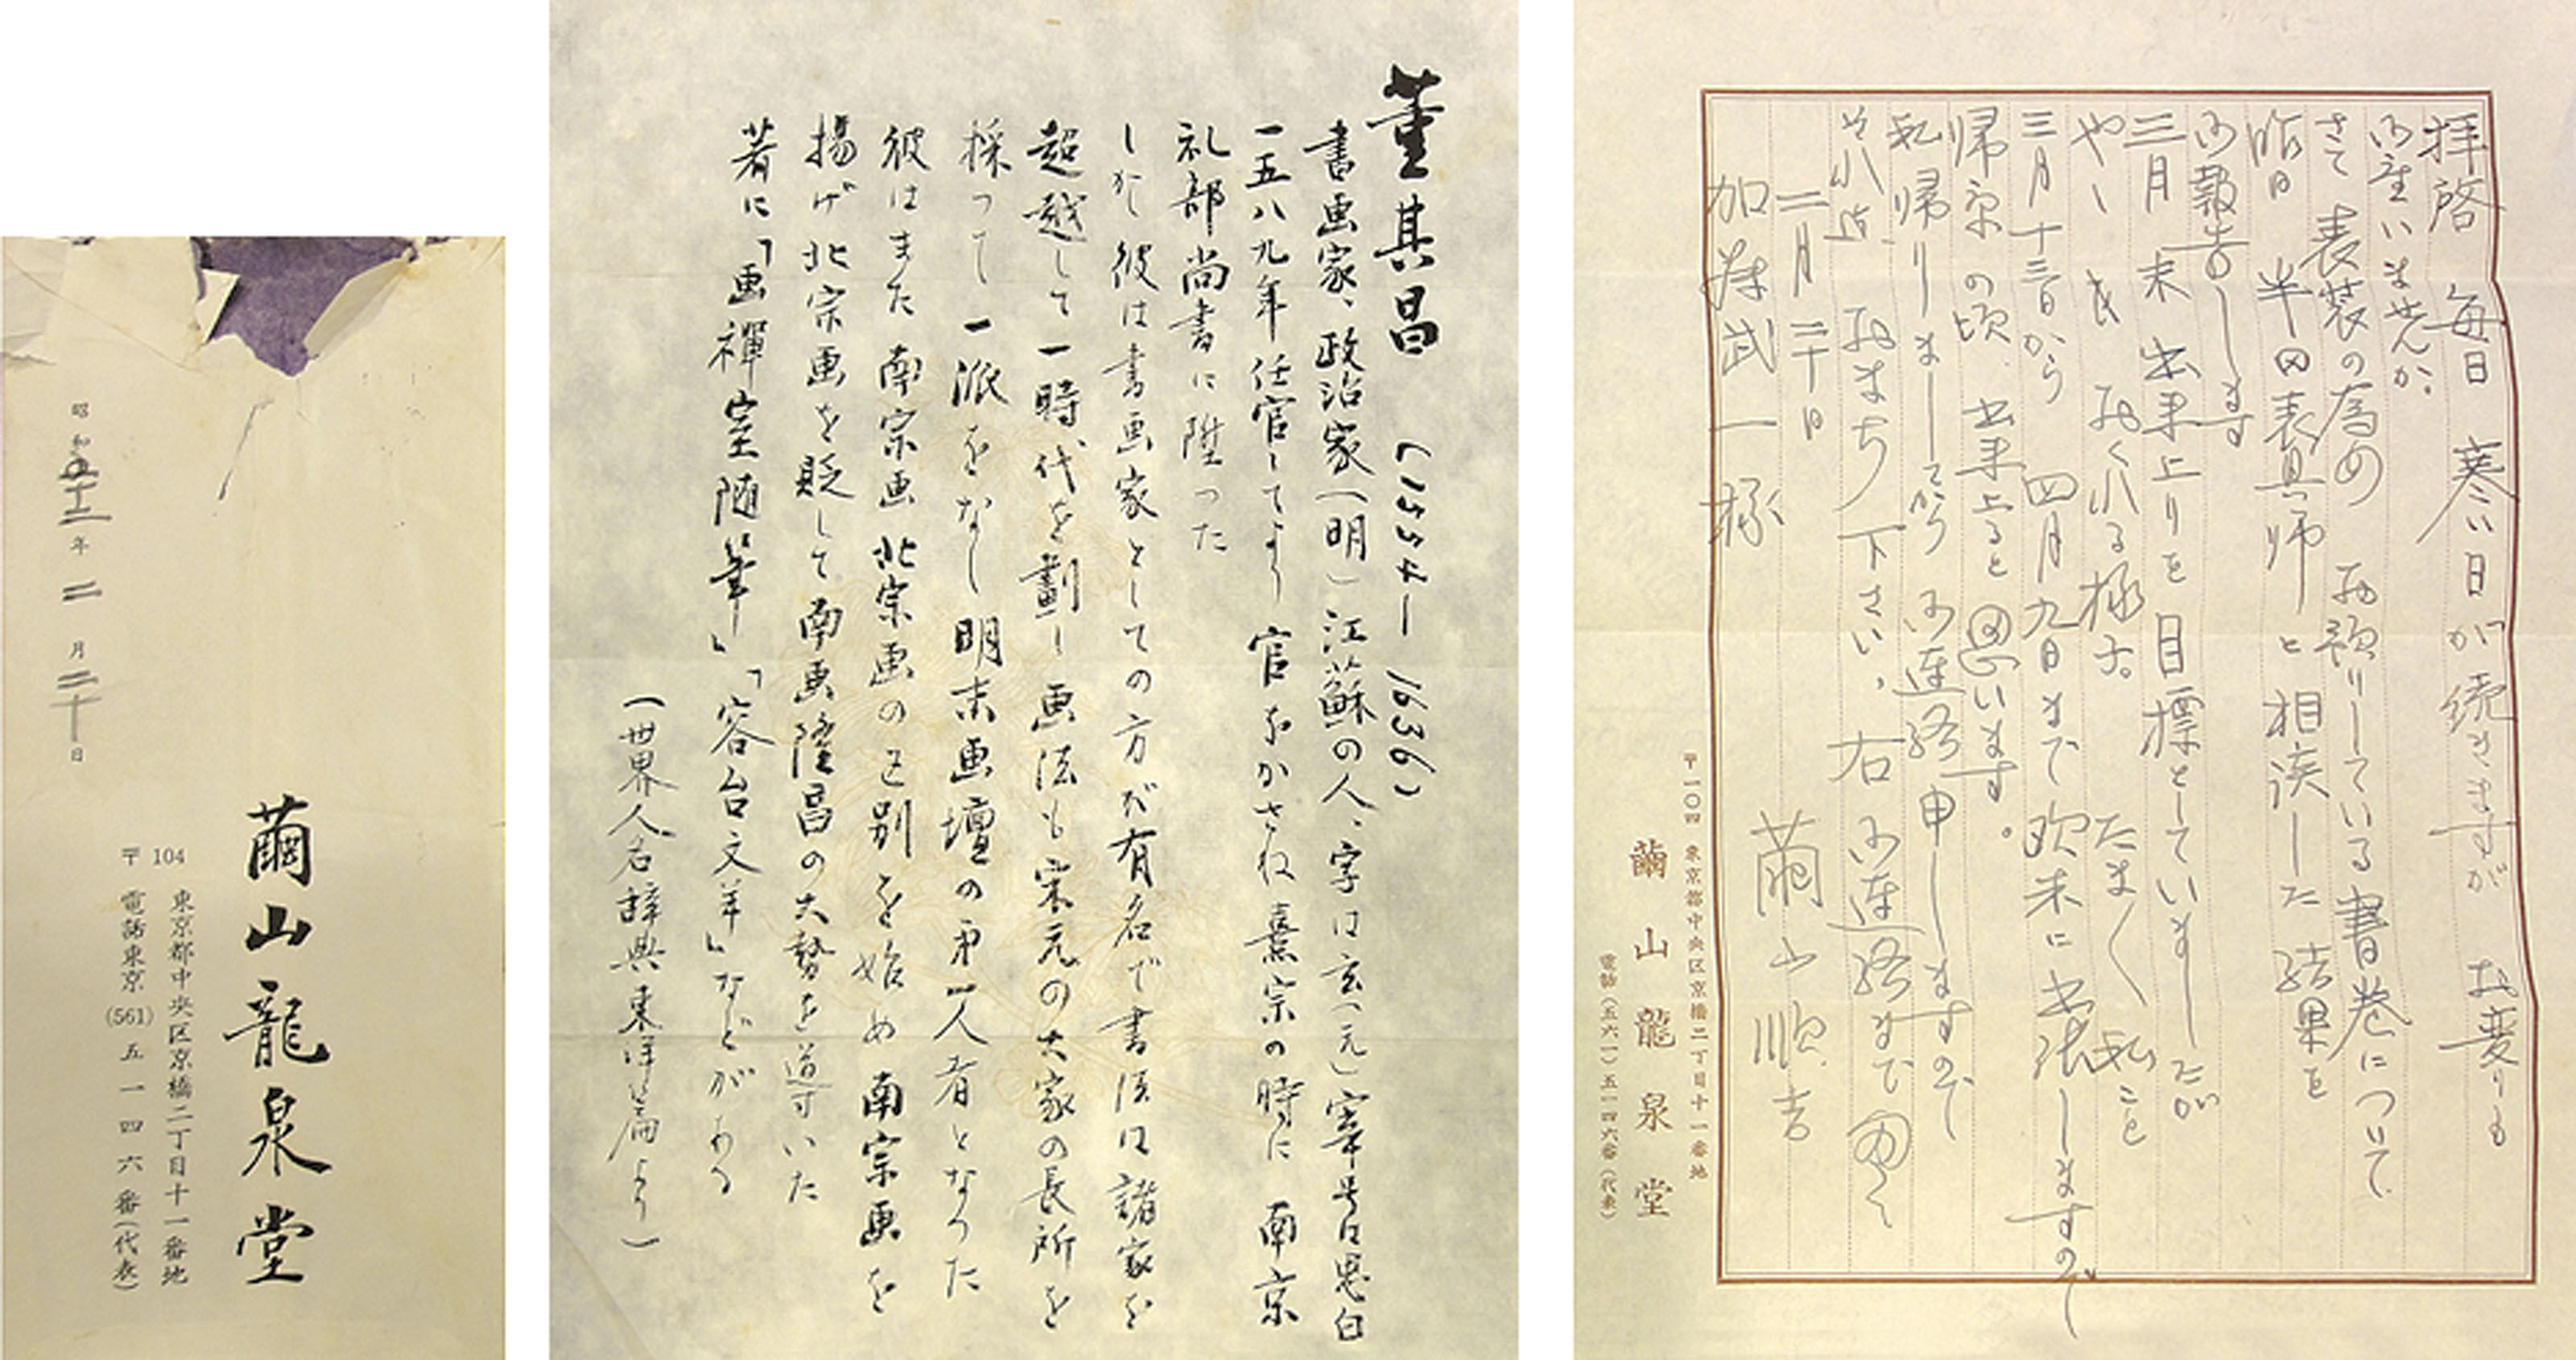 繭山龍泉堂
東京都中央区京橋二丁目十一番地
〒104 電話東京(561)五一四六番(代表)
昭和五十二年二月二十日
董其昌 (1554—1636)
書画家、政治家(明)江蘇の人、字は玄(元)宰号は思白
一五八九年任官してより 官をかさね熹宗の時に 南京
礼部尚書に陞った
しかし彼は書画家としての方が有名で書法は諸家を
超越して一時代を劃し 画法も宋元の大家の長所を
採って一派をなし 明末画壇の第一人者となった
彼はまた南宗画北宗画の区別を始め 南宗画を
揚げ北宗画を貶して南画隆昌の大勢を導いた
著に「画禅室随筆」「容台文集」などがある
(世界人名辞典東洋篇より)
拝啓 毎日寒い日が続きますが お変りも
御座いませんか。
さて 表装の為め お預りしている書巻について
昨日 半田表具師と相談した結果を
御報告します
三月末出来上りを目標としていましたが
やゝもおくれる様子。たまたま私こと
三月十三日から四月九日まで欧米に出張しますので
帰京の頃、出来上ると思います。
私帰りましてから 御連絡申しますので
それ迄 おまち下さい、右御連絡まで 匆々
二月二十日
繭山順吉
加藤武一様
〒一〇四 東京都中央区京橋二丁目十一番地
繭山龍泉堂
電話(五六一)五一四六番(代表)